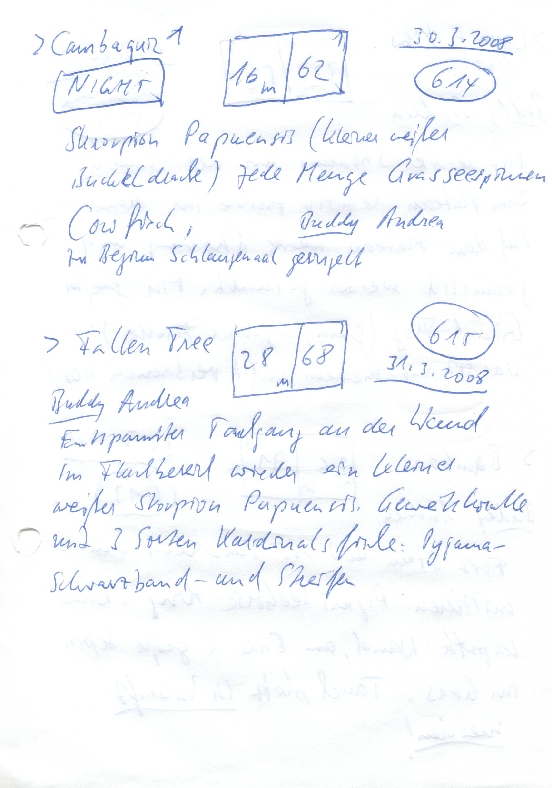 > Cambaquiz 1
30.3.2008
NIGHT
16 m 62'
614
Skorpion Papuensis (kleiner weißer
Buckeldrache) Jede Menge Grasseespinnen
Cowfisch, Buddy Andrea
zu Beginn Schlangenaal geringelt
> Fallen Tree
28 m 68'
615
31.3.2008
Buddy Andrea
Entspannter Tauchgang an der Wand
Im Flachbereich wieder ein kleiner
weißer Skorpion Papuensis. Geweihkoralle
und 3 Sorten Kardinalsfische: Pygama-
Schwarzband- und Streifen